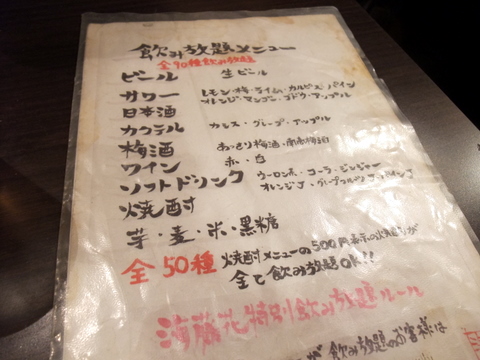 飲み放題メニュー
全90種飲み放題
ビール 生ビール
サワー レモン・梅・ライム・カルピス・パイン
オレンジ・マンゴー・ブドウ・アップル
日本酒
カクテル カシス・グレープ・アップル
梅酒 あっさり梅酒・南高梅酒
ワイン 赤・白
ソフトドリンク ウーロン茶・コーラ・ジンジャー
オレンジJ・グレープフルーツJ
焼酎
芋・麦・米・黒糖
全50種 焼酎メニューの500円表示の焼酎が
全て飲み放題OK!!
海藤花特別飲み放題ルール
飲み放題のお客様は